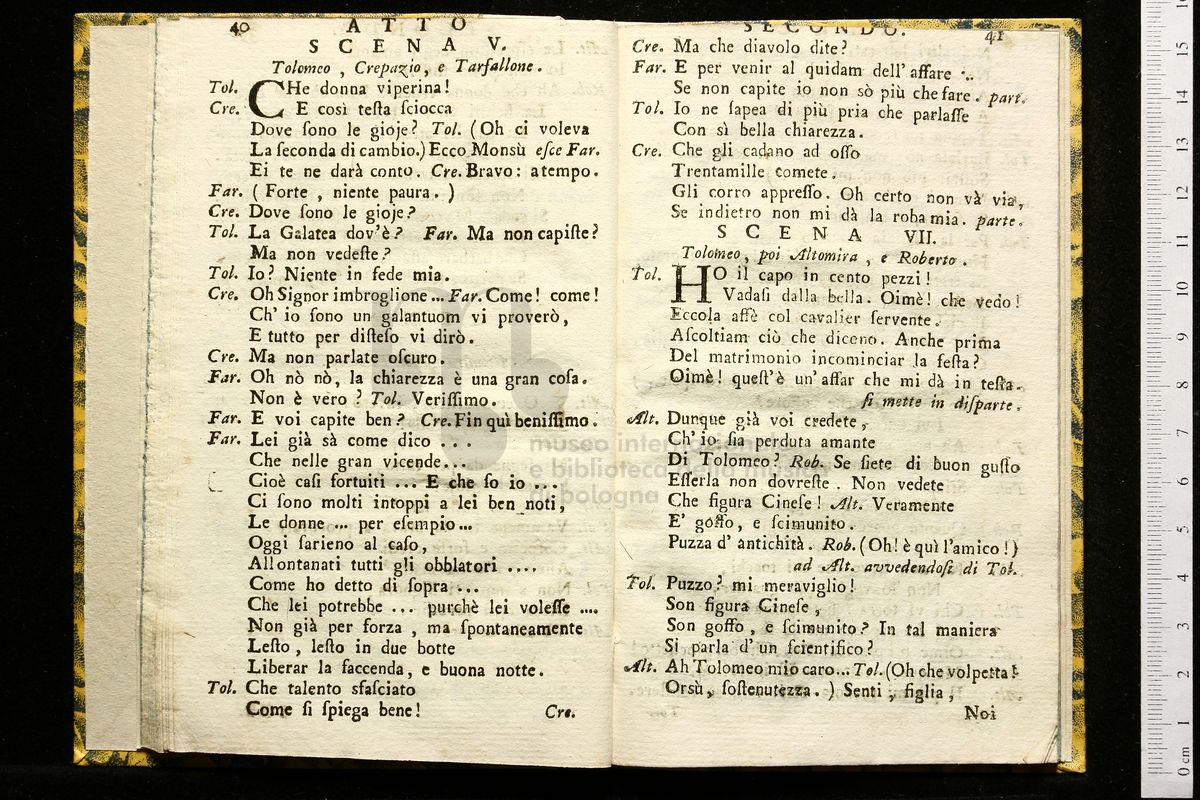 40
ATTO
SCENA V.
Tolomeo, Crepazio, e Tarfallone.
Tol. CHe donna viperina!
Cre. E così teſta ſciocca
Dove ſono le gioje? Tol. (Oh ci voleva
La ſeconda di cambio.) Ecco Monsù eſce Far.
Ei te ne darà conto. Cre. Bravo: a tempo.
Far. (Forte, niente paura.)
Cre. Dove ſono le gioje?
Tol. La Galatea dov'è? Far. Ma non capiſte?
Ma non vedeſte?
Tol. Io? Niente in fede mia.
Cre. Oh Signor imbroglione ... Far. Come! come!
Ch' io ſono un galantuom vi proverò,
E tutto per diſteſo vi dirò.
Cre. Ma non parlate oſcuro.
Far. Oh nò nò, la chiarezza è una gran coſa.
Non è vero? Tol. Veriſſimo.
Far. E voi capite ben? Cre. Fin quì beniſſimo.
Far. Lei già sà come dico ...
Che nelle gran vicende...
Cioè caſi fortuiti ... E che ſo io ...
Ci ſono molti intoppi a lei ben noti,
Le donne ... per eſempio...
Oggi ſarieno al caſo,
Allontanati tutti gli obblatori ....
Come ho detto di ſopra ...
Che lei potrebbe ... purchè lei voleſſe ....
Non già per forza, ma ſpontaneamente
Leſto, leſto in due botte
Liberar la faccenda, e buona notte.
Tol. Che talento sfaſciato
Come ſi ſpiega bene!
Cre.
SECONDO.
41
Cre. Ma che diavolo dite?
Far. E per venir al quidam dell' affare ...
Se non capite io non sò più che fare. part.
Tol. Io ne ſapea di più pria che parlaſſe
Con sì bella chiarezza.
Cre. Che gli cadano ad oſſo
Trentamille comete.
Gli corro appreſſo. Oh certo non và via,
Se indietro non mi dà la roba mia. parte.
SCENA VII.
Tolomeo, poi Altomira, e Roberto.
Tol. HO il capo in cento pezzi!
Vadaſi dalla bella. Oimè! che vedo!
Eccola affè col cavalier ſervente.
Aſcoltiam ciò che dicono. Anche prima
Del matrimonio incominciar la feſta?
Oimè! queſt' è un' affar che mi dà in teſta.
ſi mette in diſparte.
Alt. Dunque già voi credete,
Ch' io ſia perduta amante
Di Tolomeo? Rob. Se ſiete di buon guſto
Eſſerla non dovreſte. Non vedete
Che figura Cineſe! Alt. Veramente
E' goffo, e ſcimunito.
Puzza d' antichità. Rob. (Oh! è quì l'amico!)
ad Alt. avvedendoſi di Tol.
Tol. Puzzo? mi meraviglio!
Son figura Cineſe,
Son goffo, e ſcimunito? In tal maniera
Si parla d' un ſcientifico?
Alt. Ah Tolomeo mio caro... Tol. (Oh che volpetta!
Orsù, ſoſtenutezza.) Senti, figlia,
Noi
museo internazionale
e biblioteca della musica
di bologna